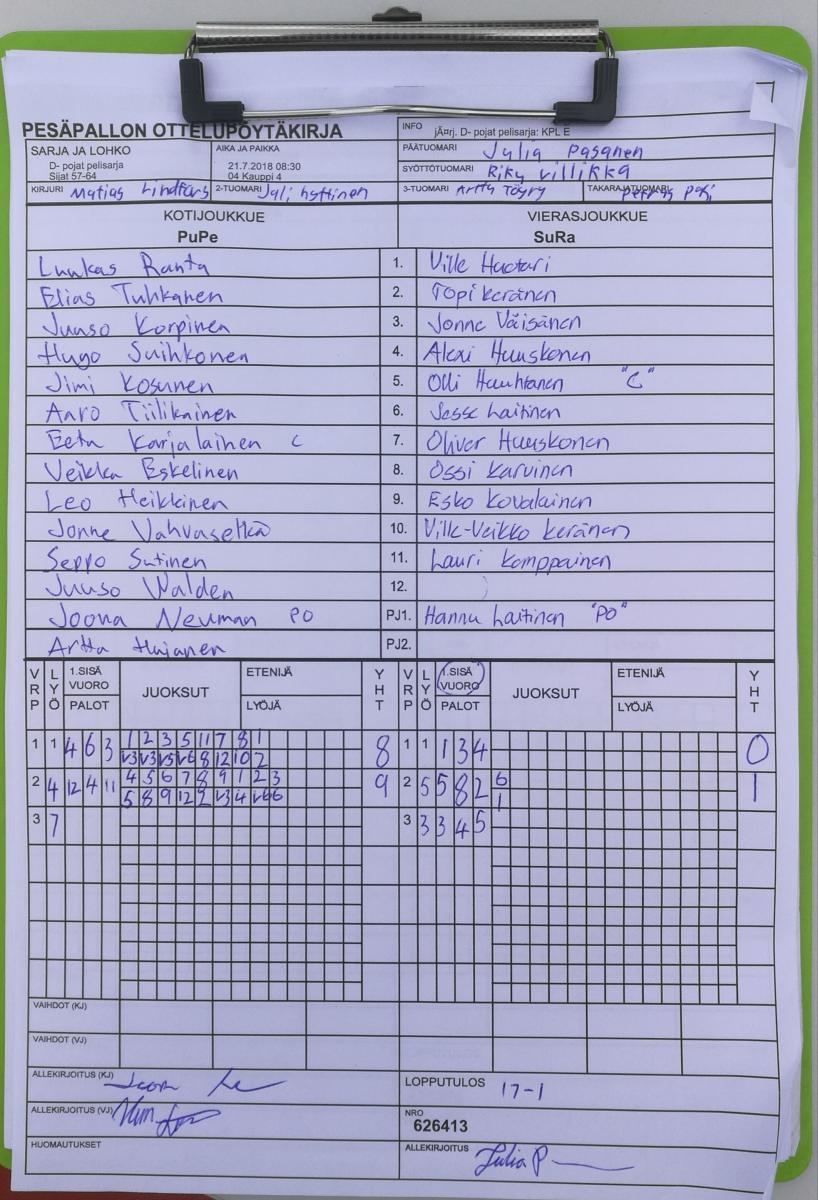 PESÄPALLON OTTELUPÖYTÄKIRJA
INFO jÃ¤rj. D- pojat pelisarja: KPL E
SARJA JA LOHKO
D- pojat pelisarja
Sijat 57-64
AIKA JA PAIKKA
21.7.2018 08:30
04 Kauppi 4
PÄÄTUOMARI Julia Pasanen
SYÖTTÖTUOMARI Riku Villikka
KIRJURI Matias Lindfors 2-TUOMARI Jali Hyttinen 3-TUOMARI Arttu Töyry TAKARAJATUOMARI
KOTIJOUKKUE VIERASJOUKKUE
PuPe SuRa
Luukas Ranta 1. Ville Huotari
Elias Tuhkanen 2. Topi Keränen
Juuso Korpinen 3. Jonne Väisänen
Hugo Suihkonen 4. Alexi Huuskonen
Jimi Kosunen 5. Olli Huuhtanen "C"
Aaro Tiilikainen 6. Jesse Laitinen
Eetu Karjalainen C 7. Oliver Huuskonen
Veikka Eskelinen 8. Ossi Karvinen
Leo Heikkinen 9. Esko Kovalainen
Jonne Vahvaselkä 10. Ville-Veikko Keränen
Seppo Sutinen 11. Lauri Komppainen
Juuso Walden 12.
Joona Neuman PO PJ1. Hannu Laitinen "PO"
Arttu PJ2.
VRP LYÖ 1.SISÄ VUORO PALOT JUOKSUT ETENIJÄ LYÖJÄ YHT VRP LYÖ 1.SISÄ VUORO PALOT JUOKSUT ETENIJÄ LYÖJÄ YHT
1 1 4 6 3 1 2 3 5 11 7 8 1 8 1 1 1 3 4 0
V3 V3 V5 V6 8 12 10 2
2 4 12 4 11 4 5 6 7 8 9 1 2 3 9 2 5 5 8 2 6 1
5 8 9 12 2 V3 4 V6 6 1
3 7 3 3 3 4 5
VAIHDOT (KJ)
VAIHDOT (VJ)
ALLEKIRJOITUS (KJ) LOPPUTULOS 17-1
ALLEKIRJOITUS (VJ) NRO
626413
HUOMAUTUKSET ALLEKIRJOITUS Julia P